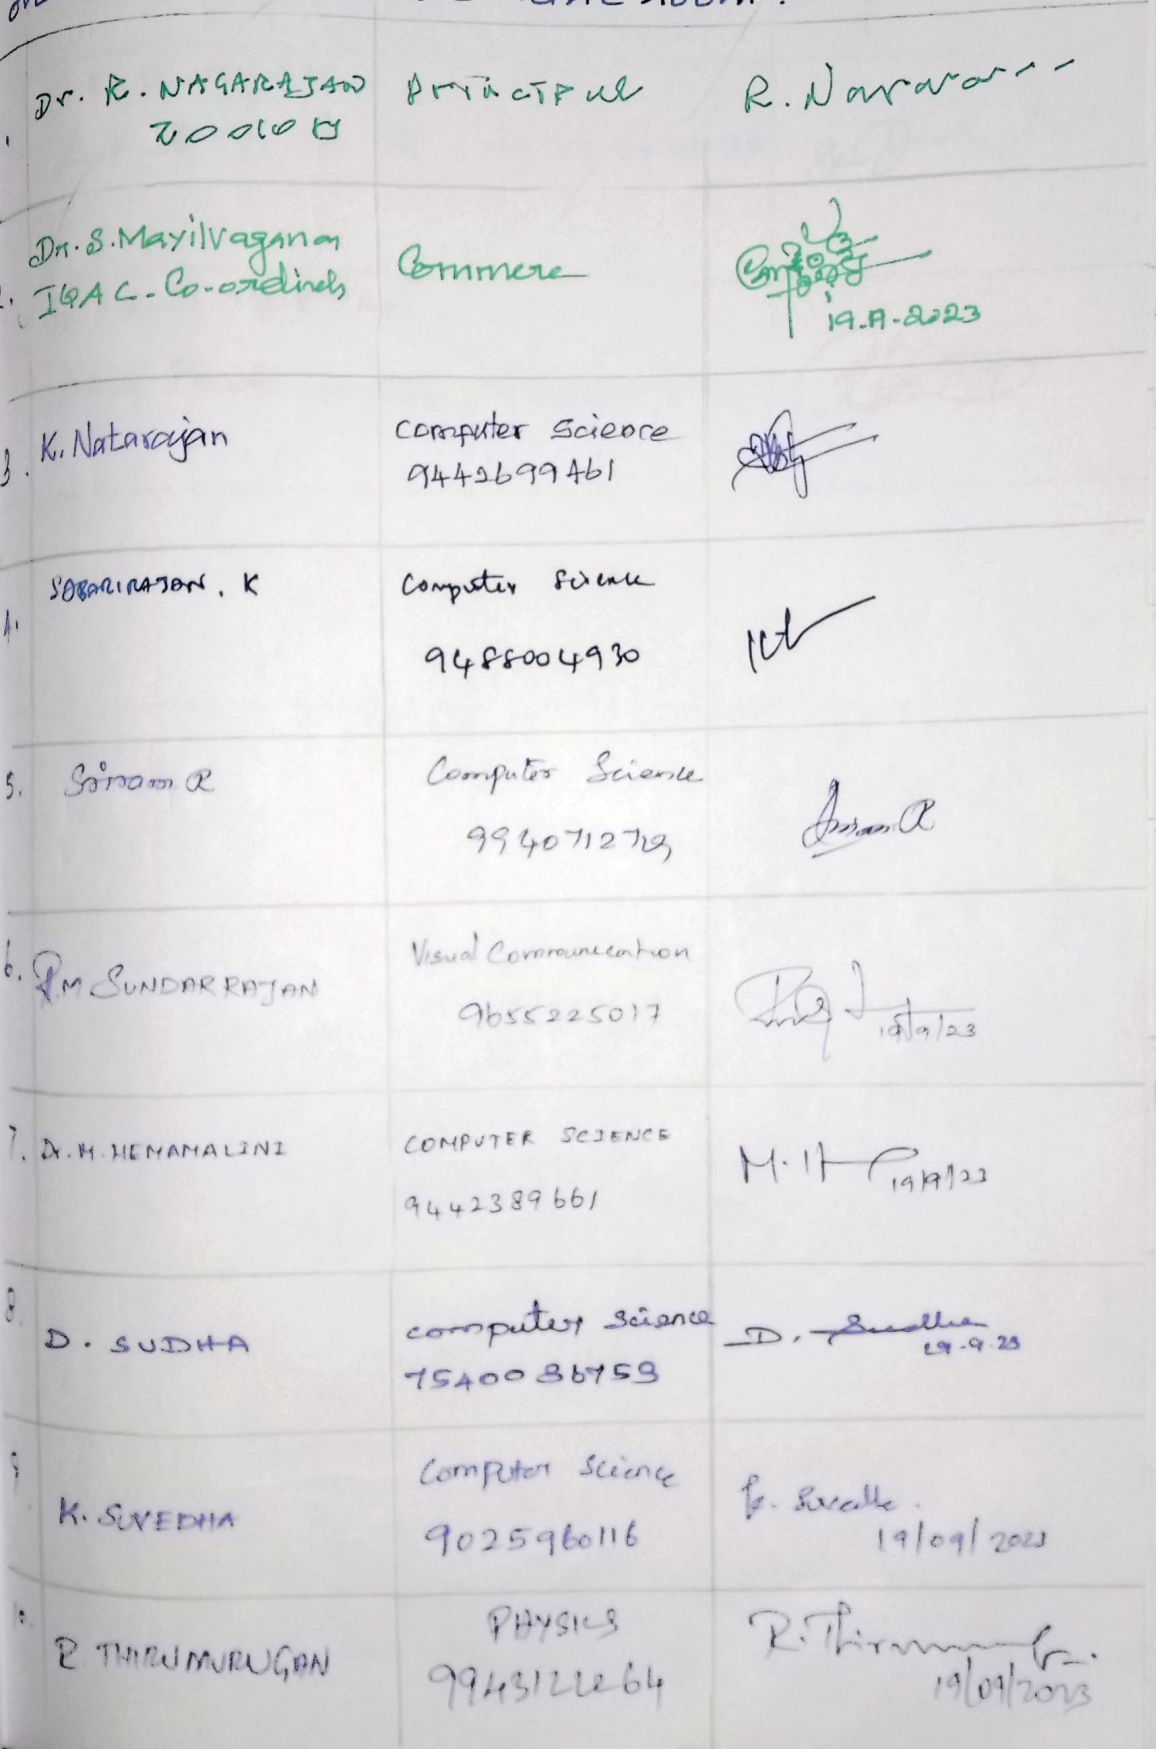 Dr. R. NAGARAJAN Principal R. Nagarajan
1.
Dr. S. Mayilvaganan
2. IQAC - Co-ordinator Commerce
19.9.2023
3. K. Natarajan Computer Science
9442699461
4. SABARIRAJAN. K Computer Science
9488004930
5. Sriram R Computer Science Sriram R
99407127
6. RM SUNDARRAJAN Visual Communication
9655225017 19/9/23
7. Dr. M. HEMAMALINI COMPUTER SCIENCE M. H 19/9/23
9442389661
8. D. SUDHA computer science D. Sudha
7540036759 19.9.23
9. K. SUVEDHA Computer Science K. Suvedha
9025960116 19/09/2023
10. R. THIRUMURUGAN PHYSICS R. Thirumurugan
19/09/2023